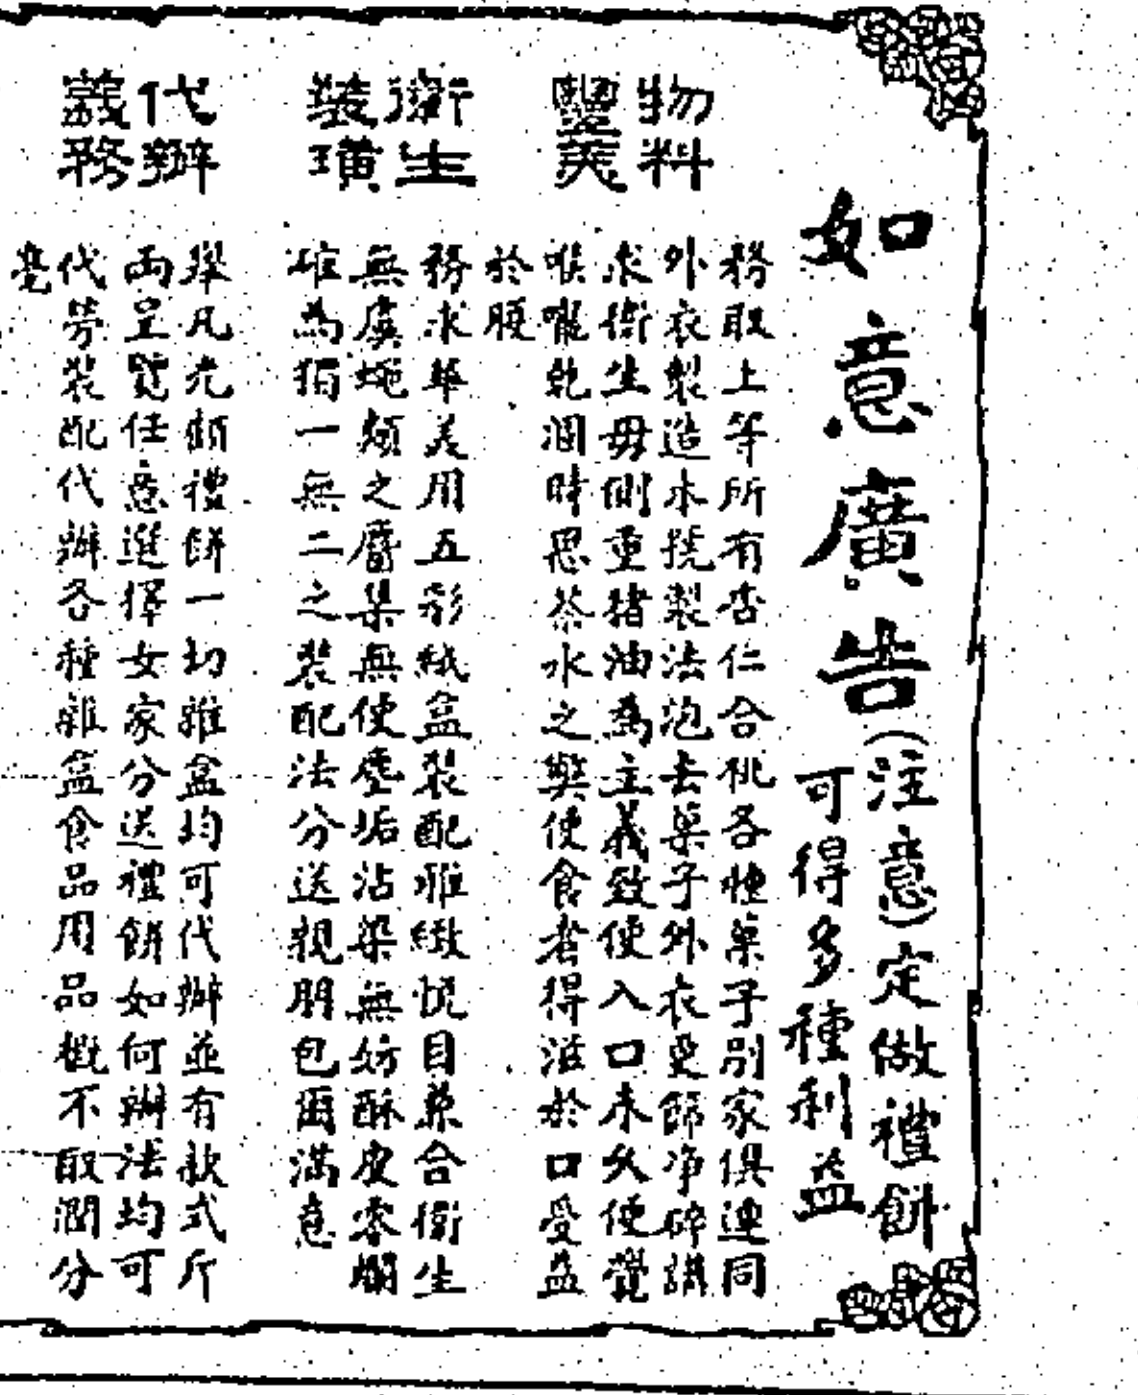 如意廣告
(注意)定做禮餅
可得多種利益
物料
豐美
務取上等所有杏仁合桃各種菓子別家俱連同
外衣製造本號製法泡去菓子外衣更篩净碎講
求衛生毋側重猪油為主義致使入口未久便覺
喉嚨乾涸時思茶水之弊使食者得滋於口受益
於腹
衛生
裝璜
務求華美用五彩紙盒裝配雅緻悅目兼合衛生
無虞蝇類之麕集無使塵垢沾染無妨酥皮零爛
確為獨一無二之裝配法分送親朋包圓滿意
代辦
義務
舉凡光頭禮餅一切雜盒均可代辦並有款式斤
両呈覽任意選擇女家分送禮餅如何辦法均可
代劳裝配代辦各種雜盒食品用品概不取潤分
毫